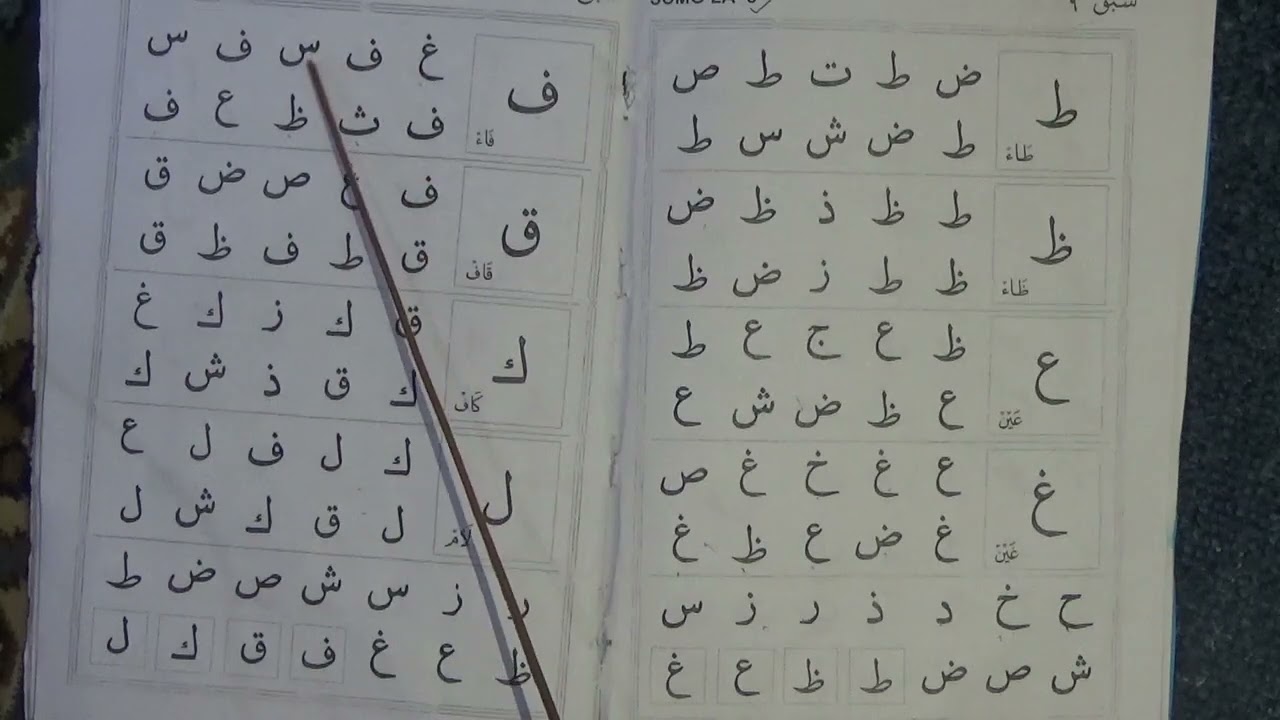 سبق ٩
ط
طَاءْ
ض ط ت ط ص
ط ض ش س ط
ظ
ظَاءْ
ط ظ ذ ظ ض
ظ ط ز ض ظ
ع
عَيْنْ
ظ ع ج ع ط
ع ظ ض ش ع
غ
غَيْنْ
ع غ خ غ ص
غ ض ع ظ غ
ح خ د ذ ر ز س
ش ص ض ط ظ ع غ
ف
فَاءْ
غ ف س ف س
ف ث ظ ع ف
ق
قَافْ
ف ص ض ق
ق ط ف ظ ق
ك
كَافْ
ق ك ز ك غ
ك ق ذ ش ك
ل
لَامْ
ك ل ف ل ع
ل ق ك ش ل
ز س ش ص ض ط
ظ ع غ ف ق ك ل